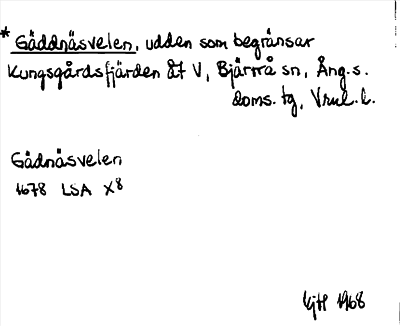 * Gäddnäsvelen, udden som begränsar
Kungsgårdsfjärden åt V, Bjärtrå sn, Ång. s.
doms. tg,
Gädnäsvelen
1678 LSA X8
1968